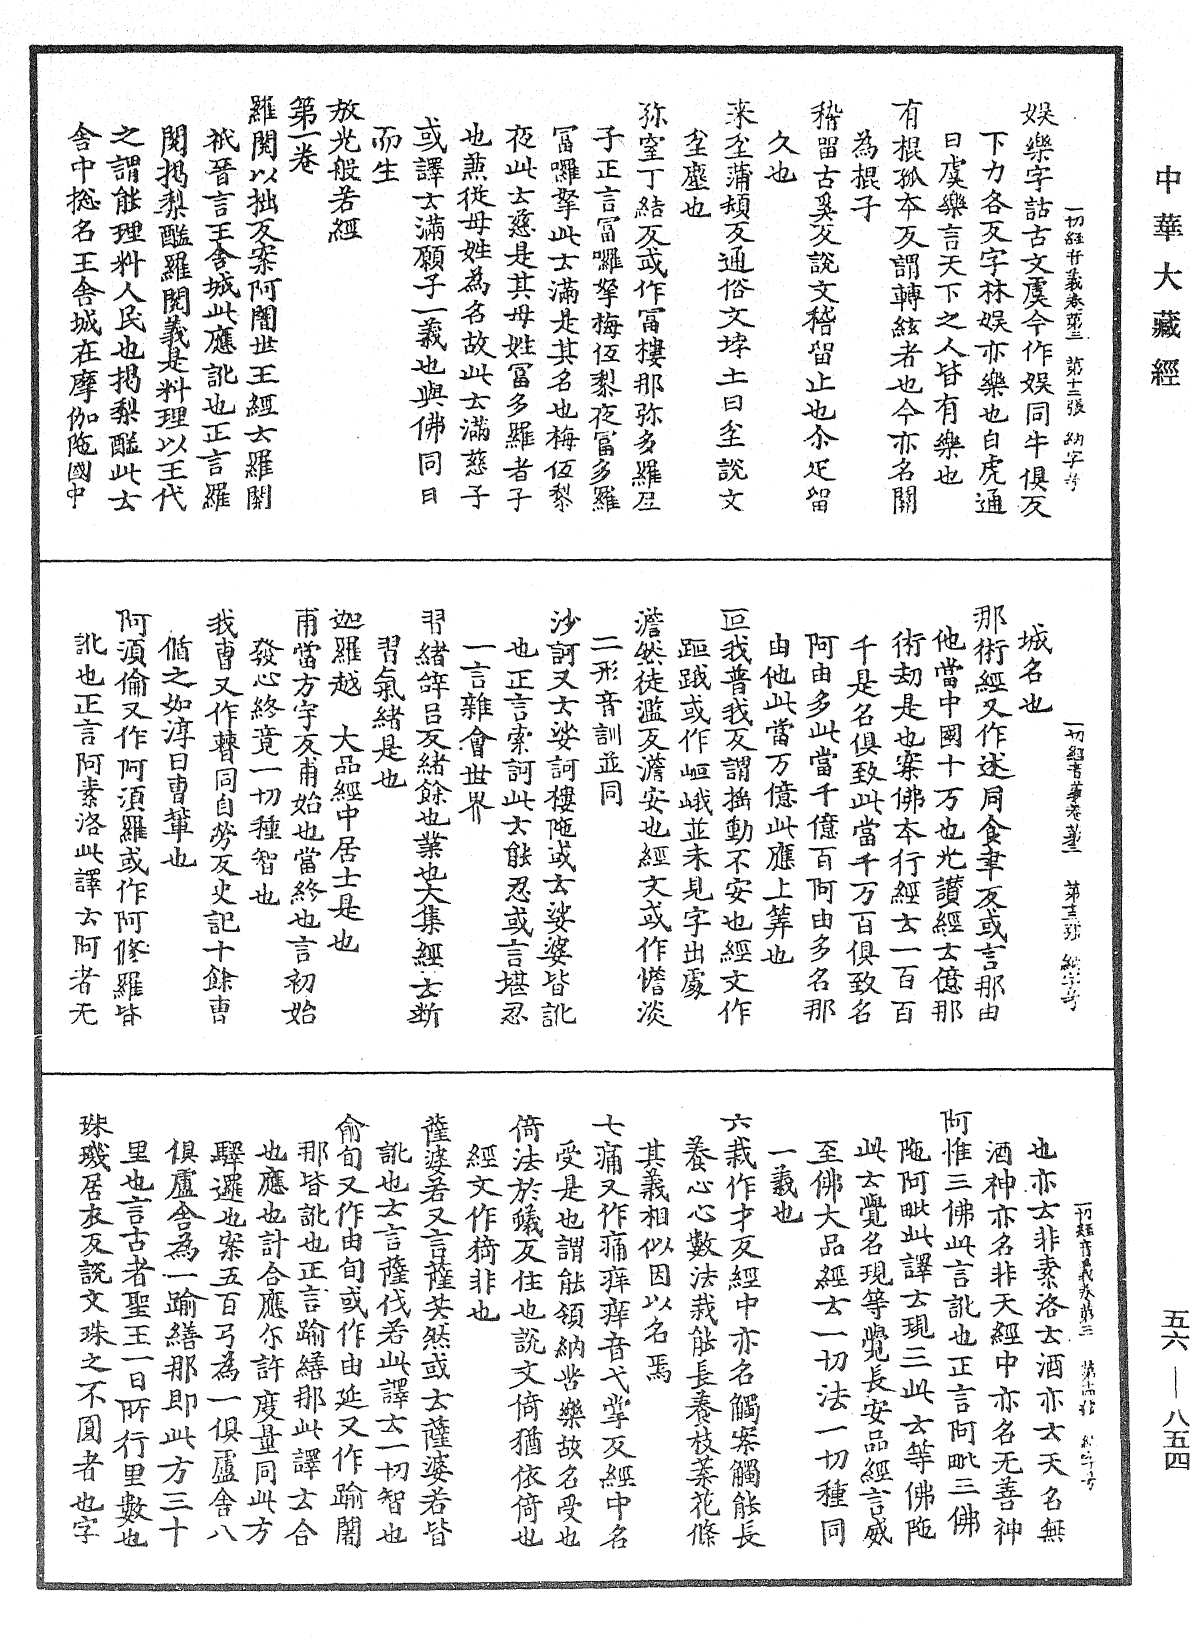 中華大藏經
一切經音義卷第三 第十二張 納字号
娛樂字詁古文虞今作娛同牛俱反
下力各反字林娛亦樂也白虎通
曰虞樂言天下之人皆有樂也
有棍孤本反謂轉絃者也今亦名關
為棍子
稽留古奚反說文稽留止也亦疋留
久也
来坌蒲頓反通俗文㘸土曰坌說文
坌塵也
弥窒丁結反或作富樓那弥多羅尼
子正言富囉拏梅低黎夜富多羅
富囉拏此云滿是其名也梅低黎
夜此云慈是其母姓富多羅者子
也兼從母姓為名故此云滿慈子
或譯云滿願子一義也與佛同日
而生
放光般若經
第一卷
羅閱以拙反案阿闍世王經云羅閱
祇晉言王舍城此應訛也正言羅
閱揭梨醯羅閱義是料理以王代
之謂能理料人民也揭梨醯此云
舍中揔名王舍城在摩伽陁國中
一切經音義卷第三 第十三張 納字号
城名也
那術經又作述同食聿反或言那由
他當中國十万也光讃經云億那
術劫是也案佛本行經云一百百
千是名俱致此當千万百俱致名
阿由多此當千億百阿由多名那
由他此當万億此應上筭也
叵我普我反謂揺動不安也經文作
𨁟䟰或作岠峨並未見字出處
澹然徒濫反澹安也經文或作憺淡
二形音訓並同
沙訶又云娑訶樓陁或云娑婆皆訛
也正言索訶此云能忍或言堪忍
一言雜會世界
習緒辝吕反緒餘也業也大集經云斷
習氣緒是也
迦羅越 大品經中居士是也
甫當方宇反甫始也當終也言初始
發心終竟一切種智也
我曹又作㬳同自勞反史記十餘曹
循之如淳曰曹輩也
阿湏倫又作阿湏羅或作阿修羅皆
訛也正言阿素洛此譯云阿者无
一切經音義卷第三 第十四張 納字号
也亦云非素洛云酒亦云天名無
酒神亦名非天經中亦名无善神
阿惟三佛此言訛也正言阿毗三佛
陁阿毗此譯云現三此云等佛陁
此云覺名現等覺長安品經言威
至佛大品經云一切法一切種同
一義也
六栽作才反經中亦名觸案觸能長
養心心數法栽能長養枝葉花條
其義相似因以名焉
七痛又作痛痒痒音弋掌反經中名
受是也謂能領納苦樂故名受也
倚法於蟻反住也說文倚猶依倚也
經文作猗非也
薩婆若又言薩芸然或云薩婆若皆
訛也云言薩伐若此譯云一切智也
俞旬又作由旬或作由延又作踰闍
那皆訛也正言踰繕那此譯云合
也應也計合應尒許度量同此方
驛邏也案五百弓為一俱盧舍八
俱盧舍為一踰繕那即此方三十
里也言古者聖王一日所行里數也
珠璣居衣反說文珠之不圓者也字
五六—八五四